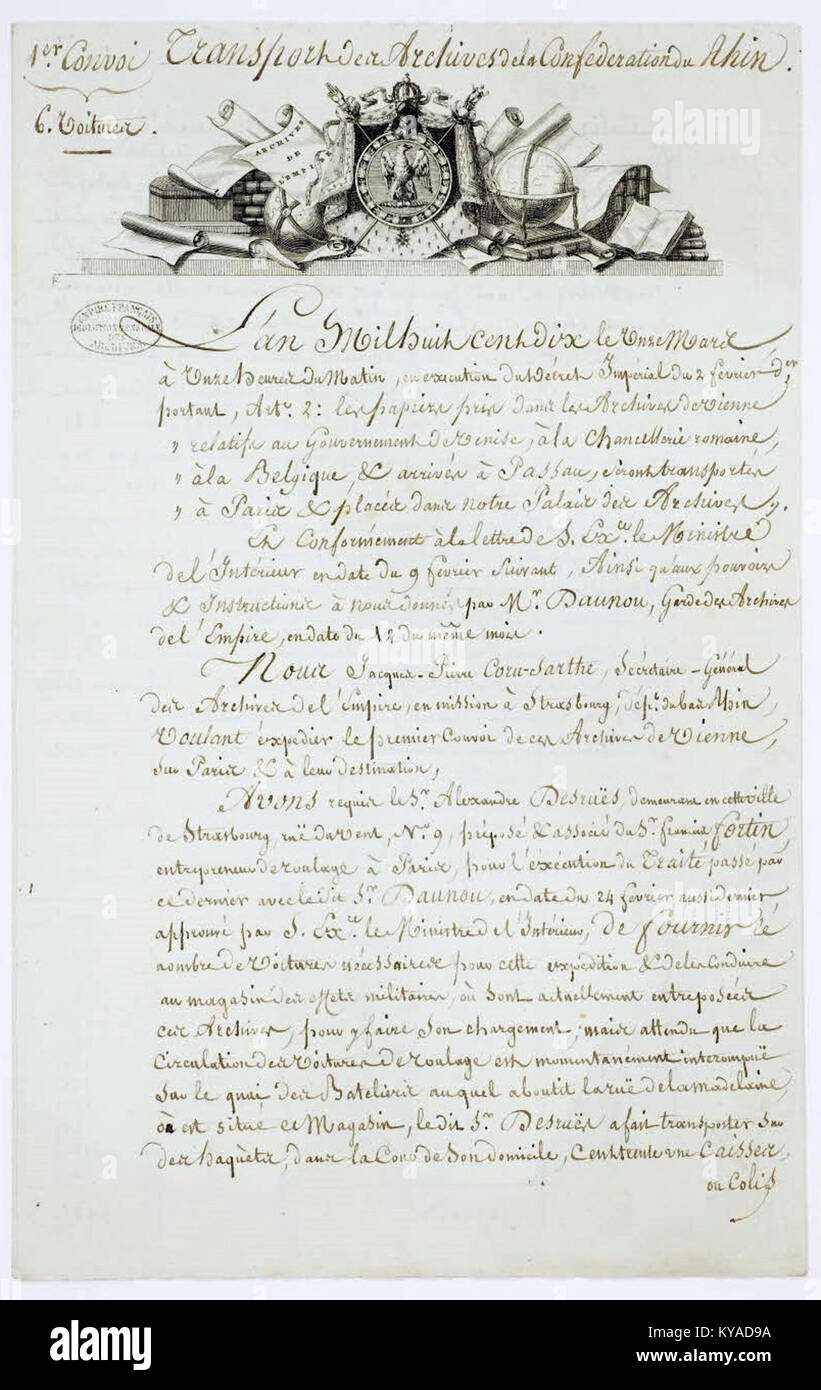 1er Convoi Transport des Archives de la Confédération du Rhin.
6. Voitures.
ARCHIVES
DE
L'EMPIRE
EMPIRE FRANÇAIS
DES
ARCHIVES
L'an Mil huit cent dix le Onze Mars
à Onze heures du Matin, en exécution du Décret Impérial du 2 février der,
portant, Art. 2: les papiers pris dans les Archives de Vienne
" relatifs au Gouvernement de Venise, à la Chancellerie romaine,
" à la Belgique, & arrivés à Passau, seront transportés
" à Paris & placés dans notre Palais des Archives,
Et Conformément à la lettre de S. Exce. le Ministre
de l'Intérieur en date du 9 février Suivant, Ainsi qu'aux pouvoirs
& Instructions à nous donnés par Mr. Daunou, Garde des Archives
de l'Empire, en date du 12 du même mois.
Nous Jacques-Pierre Coru-Sarthe, Secrétaire-Général
des Archives de l'Empire, en mission à Strasbourg, dépt. du bas Rhin,
Voulant expédier le premier Convoi de ces Archives de Vienne,
Sur Paris & à leur destination,
Avons requis le Sr. Alexandre Desruës, demeurant en cette ville
de Strasbourg, ruë du vent, No. 9, préposé & associé du Sr. francois fortin,
entrepreneur de roulage à Paris, pour l'exécution du Traité passé par
ce dernier avec le dit Sr. Daunou, en date du 24 février aussi dernier,
approuvé par S. Exce. le Ministre de l'Intérieur, de fournir le
nombre de Voitures nécessaires pour cette expédition & de les Conduire
au magasin des effets militaires, où sont actuellement entreposées
ces Archives, pour y faire son chargement; mais attendu que la
Circulation des Voitures de roulage est momentanément interrompuë
sur le quai des Bateliers auquel aboutit la ruë de la madelaine,
où est situé ce Magasin, le dit Sr. Desruës a fait transporter sur
des haquets, dans la Cour de Son domicile, Cent trente une Caisses,
ou Colis
alamy
a
alamy
Image ID: KYAD9A
www.alamy.com